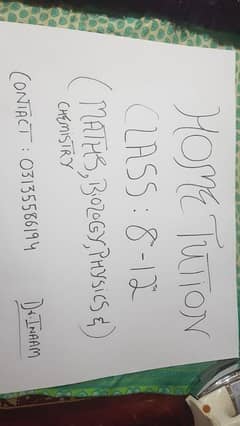 HOME TUTION
CLASS: 8-12
(MATHS, BIOLOGY, PHYSICS &
CHEMISTRY)
CONTACT: 03135586194
INAAM